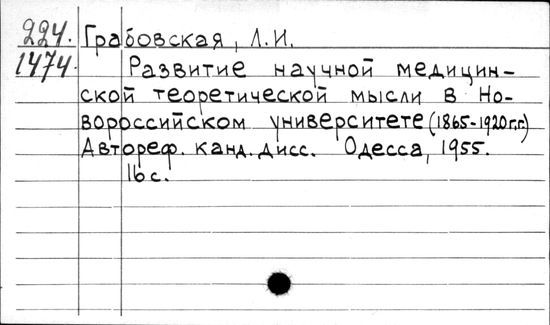 224. Грабовская, Л.И.
1474. Развитие научной медицин-
ской теоретической мысли в Но-
вороссийском университете (1865-1920г.г.)
Автореф. канд. дисс. Одесса, 1955.
16 с.